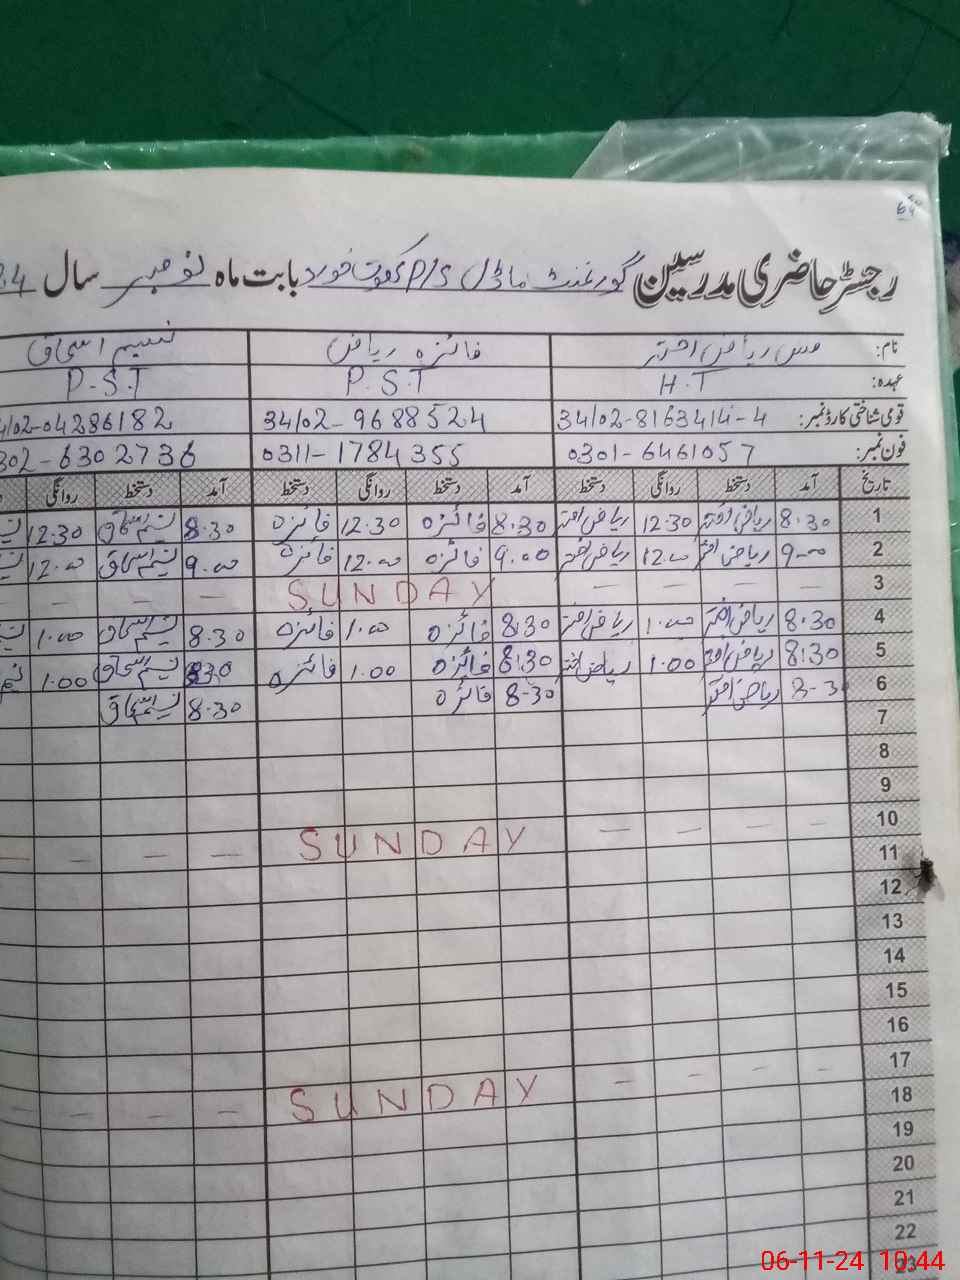 64
رجسٹر حاضری مدرسین گورنمنٹ ماڈل P/S کوٹ خورد بابت ماہ نومبر سال
نام: مس ریاض اختر فائزہ ریاض نسیم اسحاق
عہدہ: H.T P.S.T P.S.T
قومی شناختی کارڈ نمبر: 34102-8163414-4 34102-9688524 4102-04286182
فون نمبر: 0301-6461057 0311-1784355 302-6302736
تاریخ آمد دستخط روانگی دستخط آمد دستخط روانگی دستخط آمد دستخط روانگی
1 8.30 ریاض اختر 12.30 ریاض اختر 8.30 فائزہ 12.30 فائزہ 8.30 نسیم اسحاق 12.30
2 9.00 ریاض اختر 12.00 ریاض اختر 9.00 فائزہ 12.00 فائزہ 9.00 نسیم اسحاق 12.00
3 — — — — SUNDAY — — — —
4 8:30 ریاض اختر 1.00 ریاض اختر 8:30 فائزہ 1.00 فائزہ 8.30 نسیم اسحاق 1.00
5 8:30 ریاض اختر 1.00 ریاض اختر 8:30 فائزہ 1.00 فائزہ 8:30 نسیم اسحاق 1.00
6 8-3 ریاض اختر 8-30 فائزہ 8.30 نسیم اسحاق
7
8
9
10 — — — — SUNDAY — — — —
11
12
13
14
15
16
17 — — — — SUNDAY — — — —
18
19
20
21
22
23
06-11-24 10:44